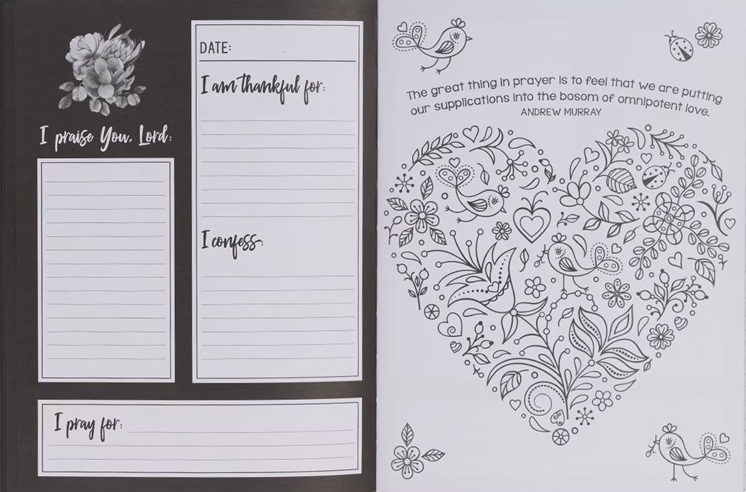 I praise You, Lord:
DATE:
I am thankful for:
I confess:
I pray for:
The great thing in prayer is to feel that we are putting
our supplications into the bosom of omnipotent love.
ANDREW MURRAY